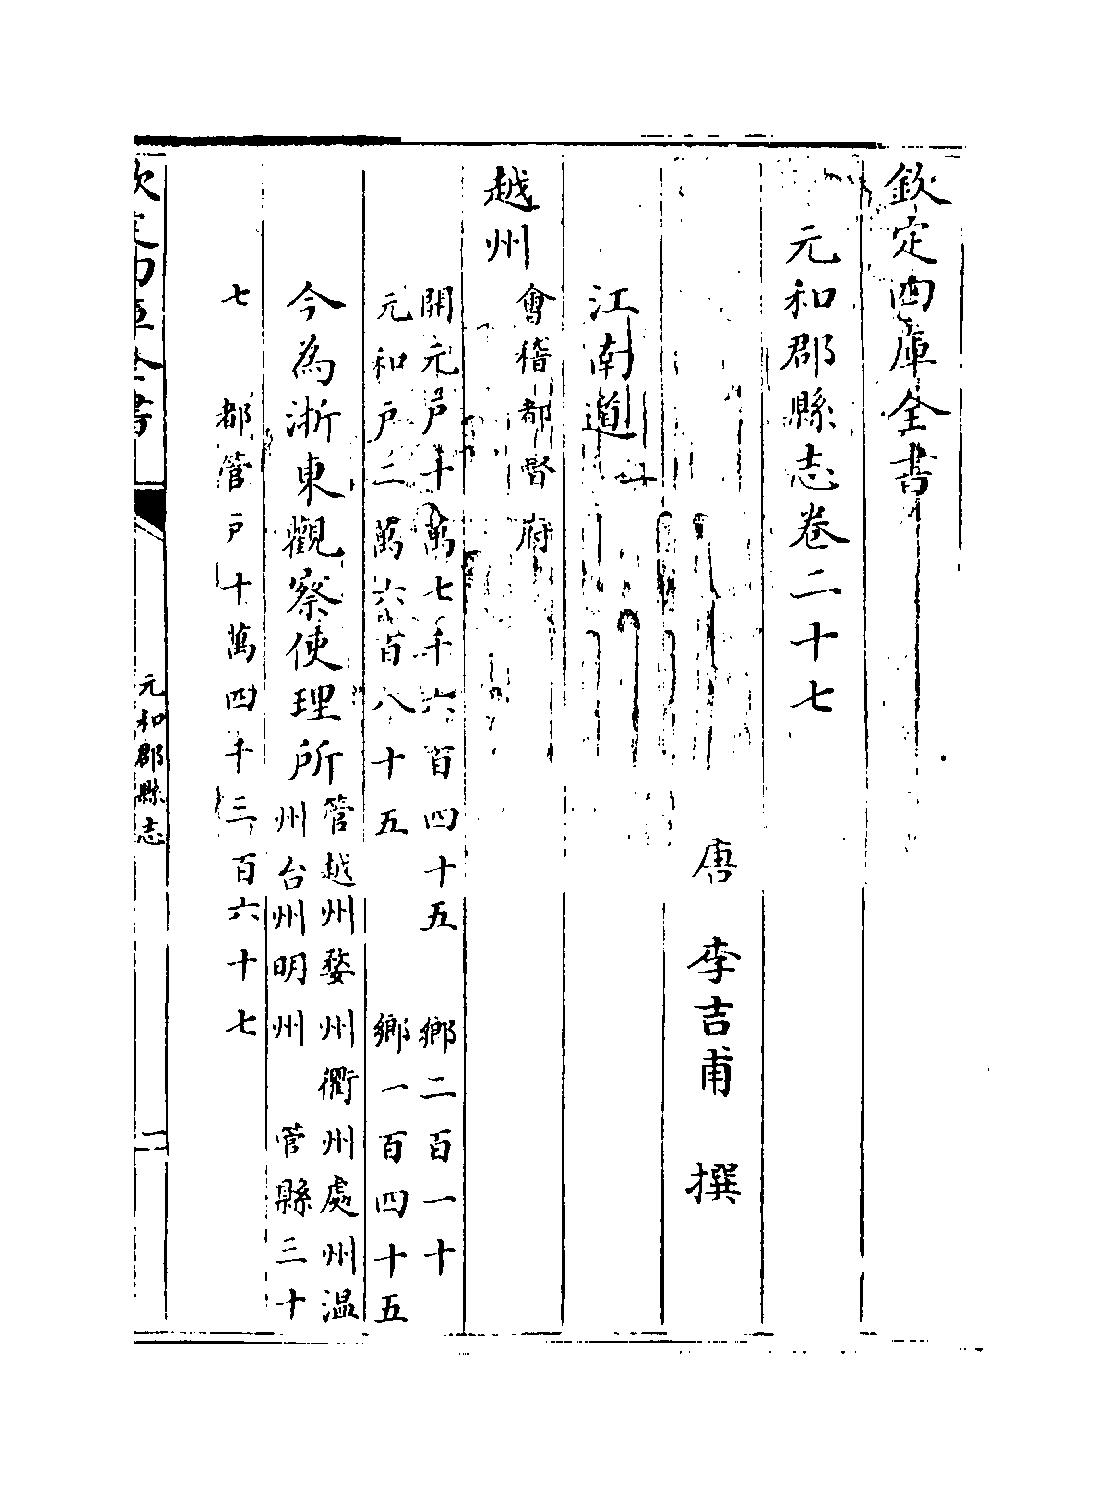 欽定四庫全書
元和郡縣志卷二十七
唐 李吉甫 撰
江南道
越州
會稽都督府
開元戶十萬七千六百四十五 鄉二百一十
元和戶二萬六百八十五 鄉一百四十五
今為浙東觀察使理所
管越州婺州衢州處州温
州台州明州 管縣三十
七 都管戶十萬四千三百六十七
欽定四庫全書
元和郡縣志